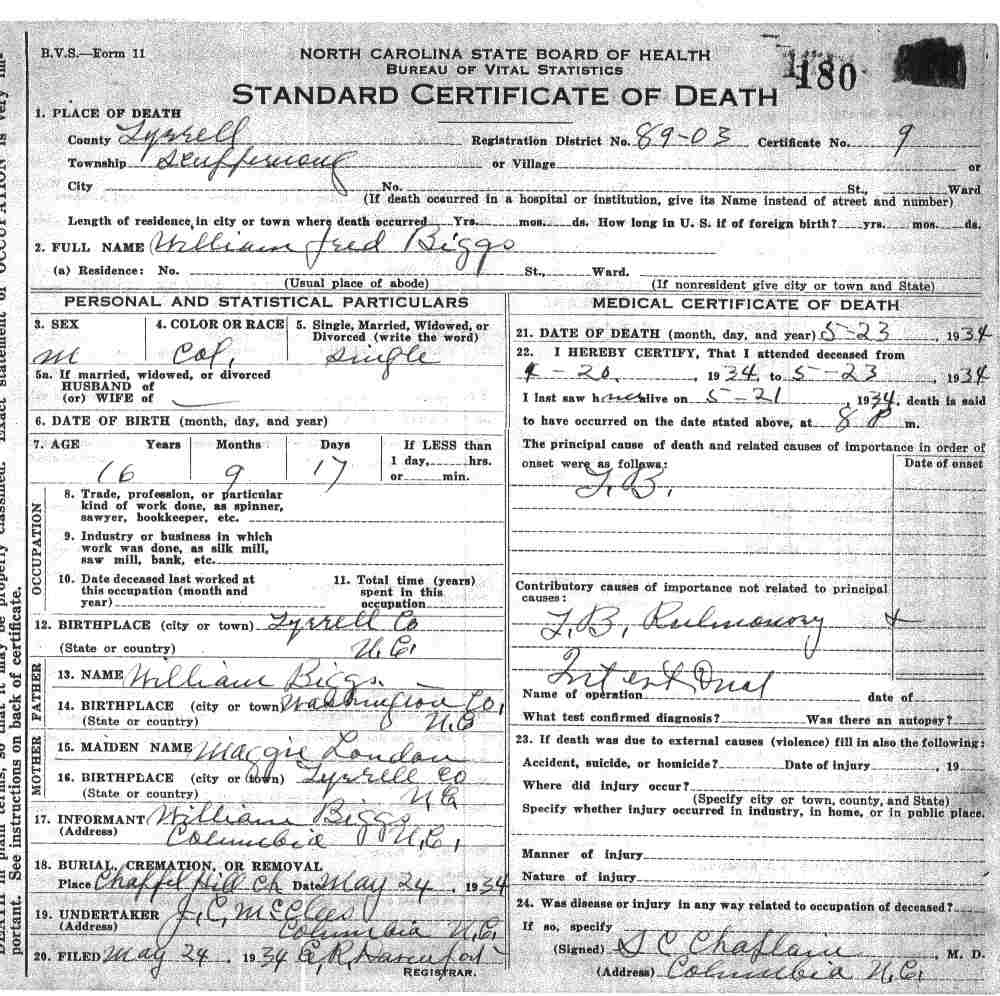 B.V.S.—Form 11
NORTH CAROLINA STATE BOARD OF HEALTH
BUREAU OF VITAL STATISTICS
STANDARD CERTIFICATE OF DEATH
180
1. PLACE OF DEATH
County Tyrrell Registration District No. 89-03 Certificate No. 9
Township Scuppernong or Village or
City No. St., Ward
(If death occurred in a hospital or institution, give its Name instead of street and number)
Length of residence in city or town where death occurred Yrs. mos. ds. How long in U. S. if of foreign birth? yrs. mos. ds.
2. FULL NAME William Fred Biggs
(a) Residence: No. St., Ward.
(Usual place of abode) (If nonresident give city or town and State)
PERSONAL AND STATISTICAL PARTICULARS
3. SEX 4. COLOR OR RACE 5. Single, Married, Widowed, or
Divorced (write the word)
M Col. Single
5a. If married, widowed, or divorced
HUSBAND of
(or) WIFE of
6. DATE OF BIRTH (month, day, and year)
7. AGE Years Months Days If LESS than
1 day, hrs.
or min.
16 9 17
OCCUPATION
8. Trade, profession, or particular
kind of work done, as spinner,
sawyer, bookkeeper, etc.
9. Industry or business in which
work was done, as silk mill,
saw mill, bank, etc.
10. Date deceased last worked at
this occupation (month and
year)
11. Total time (years)
spent in this
occupation
12. BIRTHPLACE (city or town) Tyrrell Co
(State or country) N.C.
FATHER
13. NAME William Biggs
14. BIRTHPLACE (city or town) Washington Co,
(State or country) N.C
MOTHER
15. MAIDEN NAME Maggie London
16. BIRTHPLACE (city or town) Tyrrell Co
(State or country) N.C
17. INFORMANT William Biggs
(Address) Columbia N.C.
18. BURIAL, CREMATION, OR REMOVAL
Place Chappel Hill Ch Date May 24, 1934
19. UNDERTAKER J.C. McClees
(Address) Columbia N.C.
20. FILED May 24, 1934 C.R. Davenport
REGISTRAR.
MEDICAL CERTIFICATE OF DEATH
21. DATE OF DEATH (month, day, and year) 5-23, 1934
22. I HEREBY CERTIFY, That I attended deceased from
-20, 1934, to 5-23, 1934
I last saw h alive on 5-21, 1934, death is said
to have occurred on the date stated above, at 8 P m.
The principal cause of death and related causes of importance in order of
onset were as follows: Date of onset
T.B.
Contributory causes of importance not related to principal
causes:
T.B. Pulmonory +
Intestinal
Name of operation date of
What test confirmed diagnosis? Was there an autopsy?
23. If death was due to external causes (violence) fill in also the following:
Accident, suicide, or homicide? Date of injury , 19
Where did injury occur?
(Specify city or town, county, and State)
Specify whether injury occurred in industry, in home, or in public place.
Manner of injury
Nature of injury
24. Was disease or injury in any way related to occupation of deceased?
If so, specify
(Signed) S C Chaplain, M. D.
(Address) Columbia N.C.
DEATH in plain terms, so that it may be properly classified. Exact statement of OCCUPATION is very im-
portant. See instructions on back of certificate.